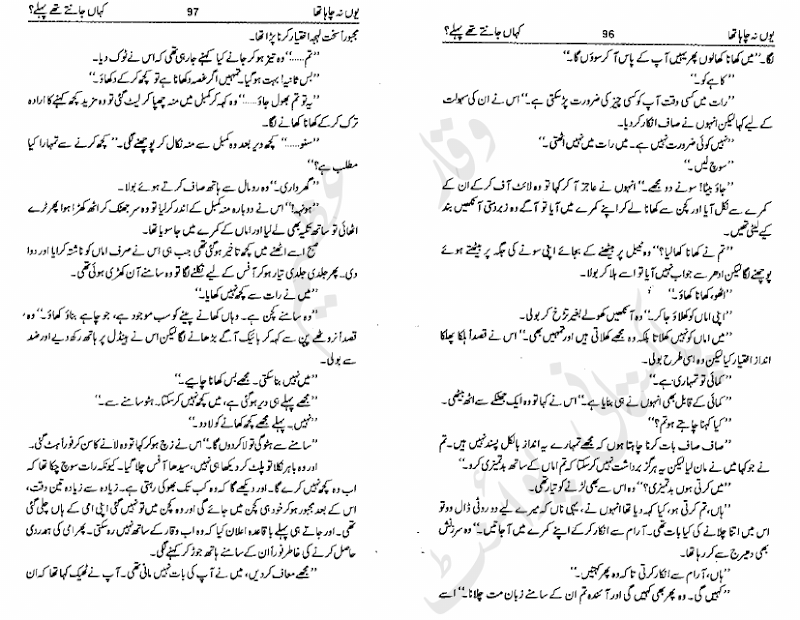 یوں نہ چاہا تھا 96 کہاں جانتے تھے پہلے؟
لگا۔ ’’میں کھانا کھالوں پھر یہیں آپ کے پاس آ کر سوؤں گا۔‘‘
’’کاہے کو۔‘‘
’’رات میں کسی وقت آپ کو کسی چیز کی ضرورت پڑسکتی ہے۔‘‘ اس نے ان کی سہولت
کے لیے کہا لیکن انہوں نے صاف انکار کردیا۔
’’نہیں کوئی ضرورت نہیں ہے۔ میں رات میں نہیں اٹھتی۔‘‘
’’سوچ لیں۔‘‘
’’جاؤ بیٹا! سونے دو مجھے۔‘‘ انہوں نے عاجز آ کر کہا تو وہ لائٹ آف کر کے ان کے
کمرے سے نکل آیا اور کچن سے کھانا لے کر اپنے کمرے میں آیا تو آگے وہ زبردستی آنکھیں بند
کیے لیٹی تھیں۔
’’تم نے کھانا کھالیا؟‘‘ وہ ٹیبل پر بیٹھنے کے بجائے اپنی سونے کی جگہ پر بیٹھتے ہوئے
پوچھنے لگا لیکن ادھر سے جواب نہیں آیا تو اسے ہلا کر بولا۔
’’اٹھو، کھانا کھاؤ۔‘‘
’’اپنی اماں کو کھلاؤ جا کر۔‘‘ وہ آنکھیں کھولے بغیر تڑخ کر بولی۔
’’میں اماں کو نہیں کھلاتا بلکہ وہ مجھے کھلاتی ہیں اور تمہیں بھی۔‘‘ اس نے قصداً ہلکا پھلکا
انداز اختیار کیا لیکن وہ اسی طرح بولی۔
’’کمائی تو تمہاری ہے۔‘‘
’’کمائی کے قابل بھی انہوں نے ہی بنایا ہے۔‘‘ اس نے کہا تو وہ ایک جھٹکے سے اٹھ بیٹھی۔
’’کیا کہنا چاہتے ہو تم؟‘‘
’’صاف صاف بات کرنا چاہتا ہوں کہ مجھے تمہارے یہ انداز بالکل پسند نہیں ہیں۔ تم
نے جو کہا میں نے مان لیا لیکن یہ ہرگز برداشت نہیں کرسکتا کہ تم اماں کے ساتھ بدتمیزی کرو۔‘‘
’’میں کرتی ہوں بدتمیزی؟‘‘ وہ اس سے بھی لڑنے کو تیار تھی۔
’’ہاں، تم کرتی ہو، کیا کہہ دیا تھا انہوں نے، یہی ناں کہ میرے لیے دو روٹی ڈال دو تو
اس میں اتنا چلانے کی کیا بات تھی۔ آرام سے انکار کر کے اپنے کمرے میں آ جاتیں۔‘‘ وہ سرزنش
بھی دھیرج سے کر رہا تھا۔
’’ہاں، آرام سے انکار کرتی تا کہ وہ پھر کہتیں۔‘‘
’’کہیں گی۔ وہ پھر بھی کہیں گی اور آئندہ تم ان کے سامنے زبان مت چلانا۔‘‘ اسے
یوں نہ چاہا تھا 97 کہاں جانتے تھے پہلے؟
مجبوراً سخت لہجہ اختیار کرنا پڑا تھا۔
’’تم.....‘‘ وہ تیز ہو کر جانے کیا کہنے جارہی تھی کہ اس نے ٹوک دیا۔
’’بس ثانیہ! بہت ہوگیا۔ تمہیں اگر غصہ دکھانا ہے تو کچھ کر کے دکھاؤ۔‘‘
’’یہ تو تم بھول جاؤ.....‘‘ وہ کہہ کر کمبل میں منہ چھپا کر لیٹ گئی تو وہ مزید کچھ کہنے کا ارادہ
ترک کر کے کھانا کھانے لگا۔
’’سنو.....‘‘ کچھ دیر بعد وہ کمبل سے منہ نکال کر پوچھنے لگی۔ ’’کچھ کرنے سے تمہارا کیا
مطلب ہے؟‘‘
’’گھر داری۔‘‘ وہ رومال سے ہاتھ صاف کرتے ہوئے بولا۔
’’ہونہہ!‘‘ اس نے دوبارہ منہ کمبل کے اندر کرلیا تو وہ سر جھٹک کر اٹھ کھڑا ہوا پھر ٹرے
اٹھائی تو ساتھ تکیہ بھی لے لیا اور اماں کے کمرے میں جا سویا تھا۔
صبح اسے اٹھنے میں کچھ تاخیر ہوگئی تھی جب ہی اس نے صرف اماں کو ناشتہ کرایا اور دوا
دی۔ پھر جلدی جلدی تیار ہو کر آفس کے لیے نکلنے لگا تو وہ سامنے آن کھڑی ہوئی تھی۔
’’میں نے رات سے کچھ نہیں کھایا۔‘‘
’’وہ سامنے کچن ہے۔ وہاں کھانے پینے کو سب موجود ہے، جو چاہے بناؤ کھاؤ۔‘‘ وہ،
قصداً نروٹھے پن سے کہہ کر بائیک آگے بڑھانے لگا لیکن اس نے ہینڈل پر ہاتھ رکھ دیے اور ضد
سے بولی۔
’’میں نہیں بناسکتی۔ مجھے بس کھانا چاہیے۔‘‘
’’مجھے پہلے ہی دیر ہوگئی ہے، میں کچھ نہیں کرسکتا۔ ہٹو سامنے سے۔‘‘
’’نہیں۔ پہلے مجھے کچھ کھانے کو لا دو۔‘‘
’’سامنے سے ہٹو گی تو لا کر دوں گا۔‘‘ اس نے زچ ہو کر کہا تو وہ لانے کا سن کر فوراً ہٹ گئی۔
اور وہ باہر نکلا تو پلٹ کر دیکھا ہی نہیں، سیدھا آفس چلا گیا۔ کیونکہ رات سوچ چکا تھا کہ
اب وہ کچھ نہیں کرے گا۔ اور دیکھے گا کہ وہ کب تک بھوکی رہتی ہے۔ زیادہ سے زیادہ تین وقت،
اس کے بعد مجبور ہو کر خود ہی کچن میں جائے گی اور وہ کچن میں تو نہیں گئی اپنی امی کے ہاں چلی گئی
تھی۔ اور جاتے ہی پہلے باقاعدہ اعلان کیا کہ وہ اب وقار کے ساتھ نہیں رہ سکتی۔ پھر امی کی ہمدردی
حاصل کرنے کی خاطر فوراً ان کے سامنے ہاتھ جوڑ کر کہنے لگی۔
’’مجھے معاف کردیں، میں نے آپ کی بات نہیں مانی تھی۔ آپ نے ٹھیک کہا تھا کہ ان